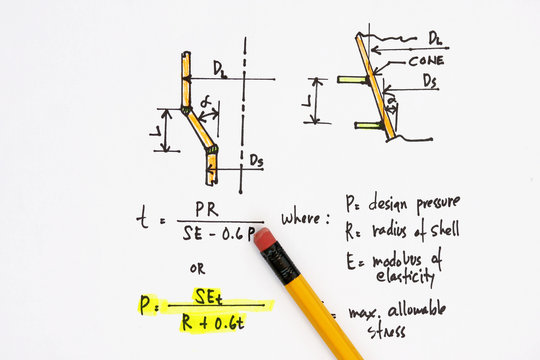 DL
α
L
Ds
DL
CONE
Ds
L
α
t = PR / SE - 0.6P where: P = design pressure
R = radius of shell
OR
E = modolus of elasticity
P = SEt / R + 0.6t
max. allowable stress